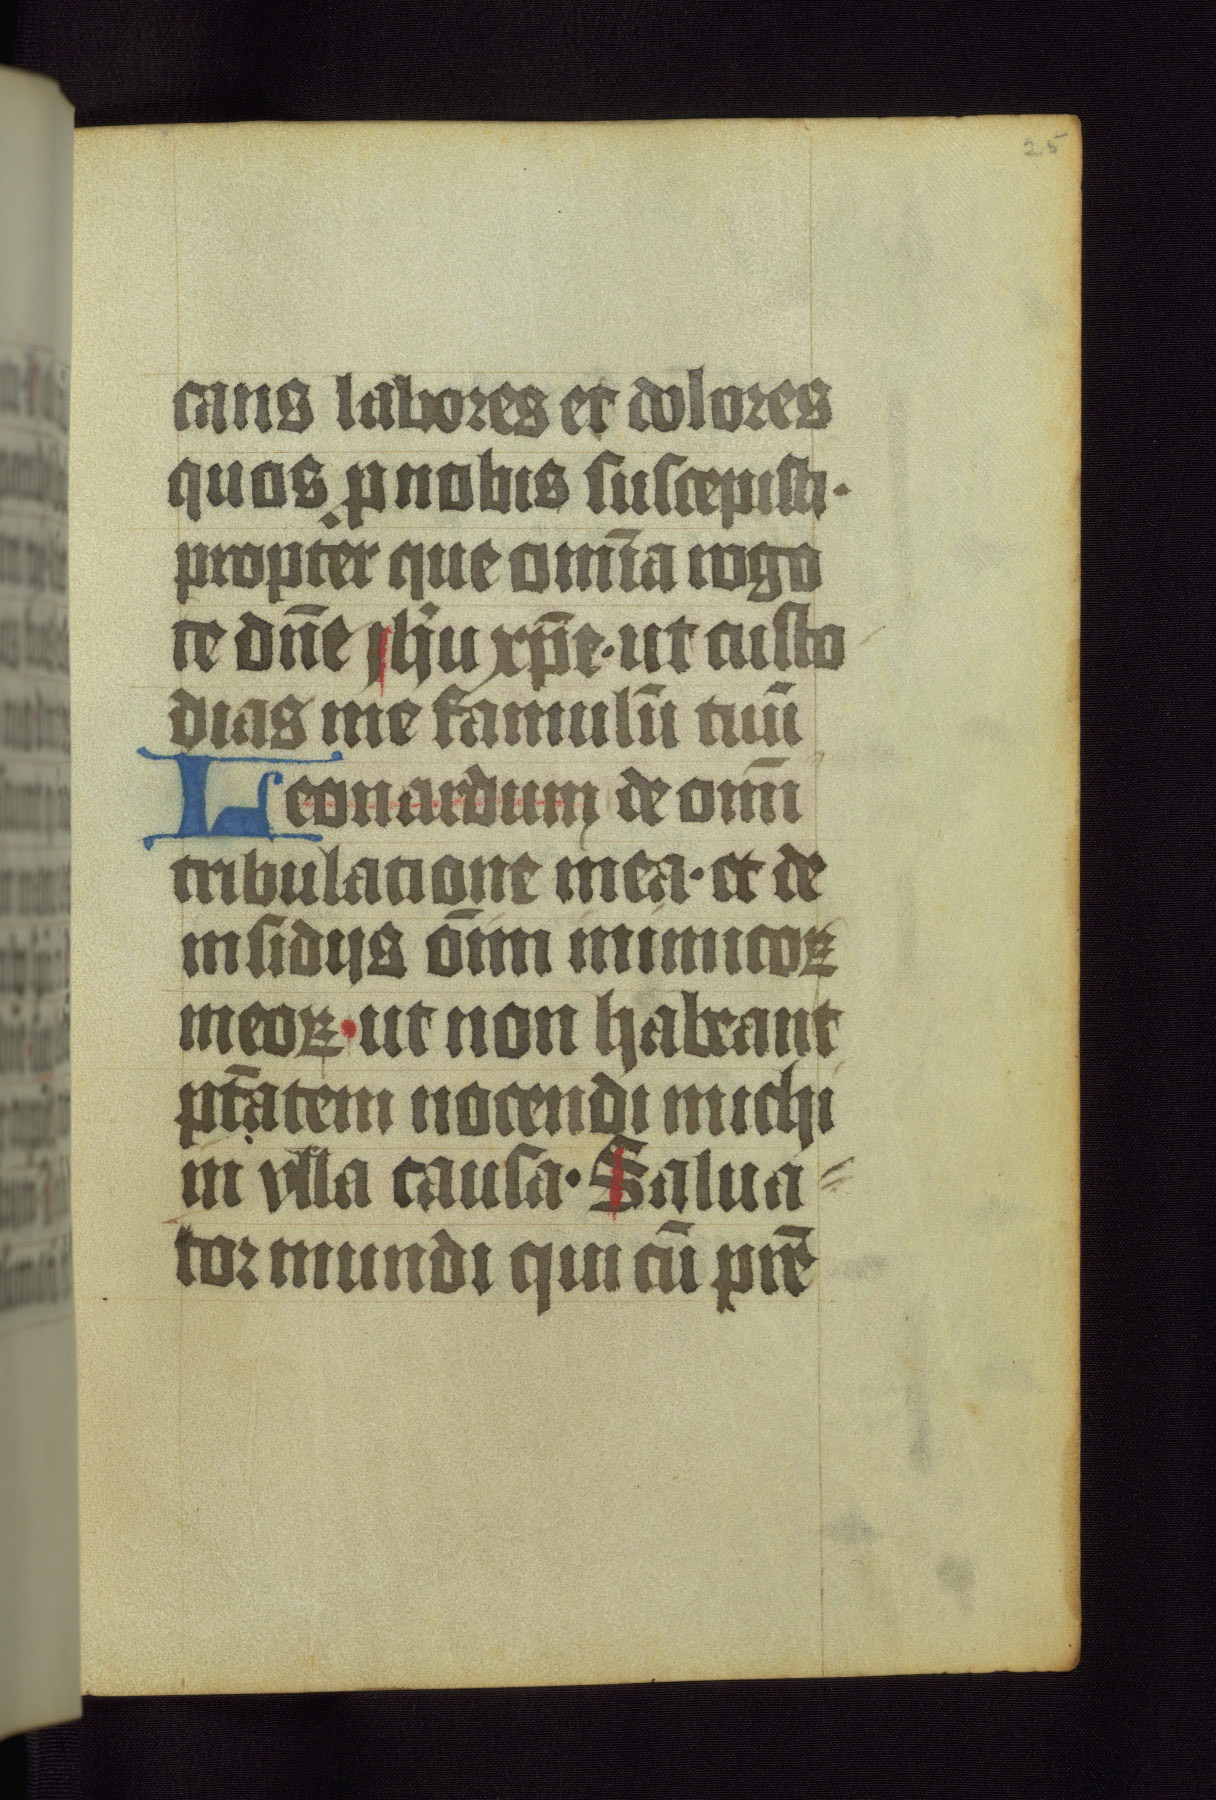 25
cans labores et dolores
quos p nobis suscepisti·
propter que om̄ia rogo
te dn̄e ihu xp̄e· ut custo
dias me famulū tuū
Leonardum de omī
tribulatione mea· et de
insidijs ōim inimicoꝝ
meoꝝ· ut non habeant
pt̄atem nocendi michi
in vlla causa· Salua
tor mundi qui cū pr̄e